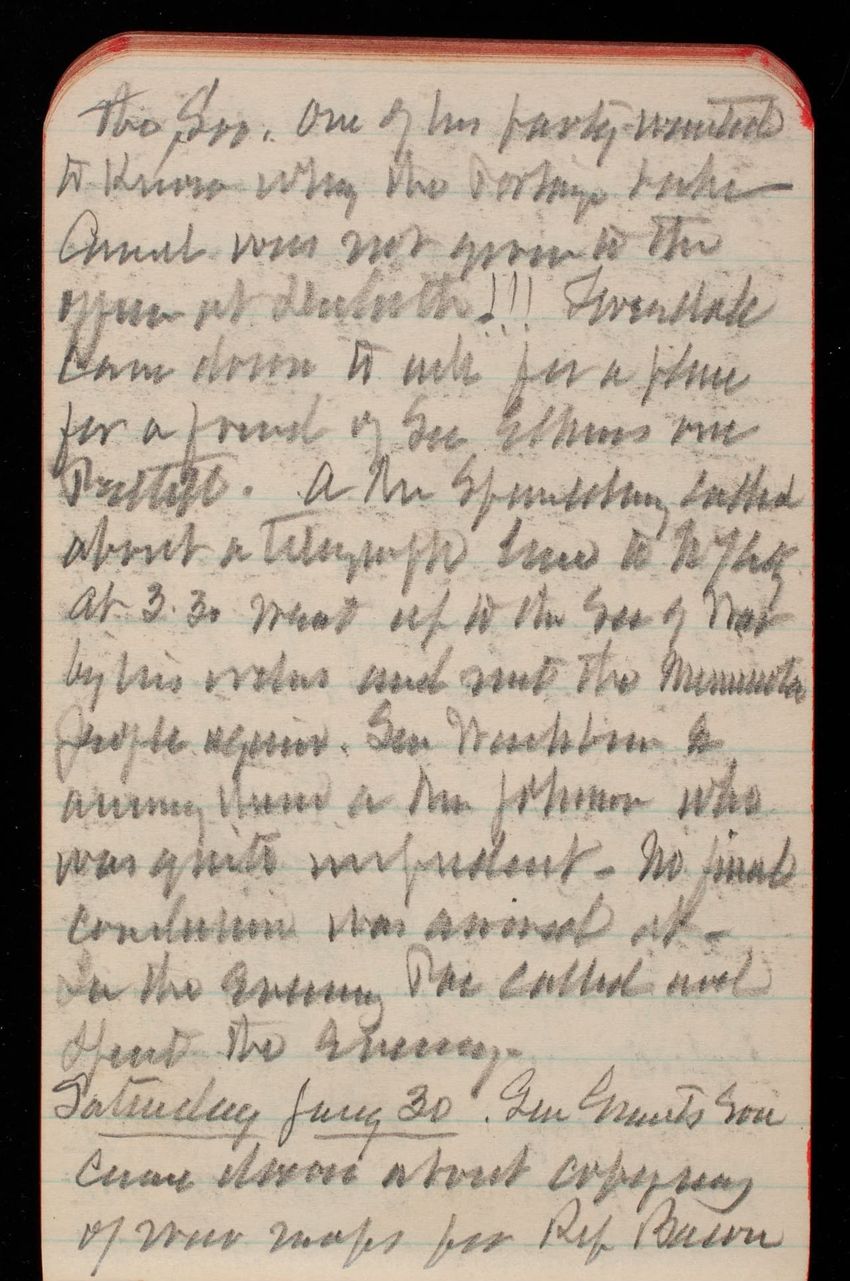 the Soo. One of his party wanted
to know why the Portage Lake
Canal was not given to the
officer at Duluth!!!
came down to ask for a place
for a friend of Sec Elkins one
A Mr called
about a telegraph line to
at 3.30 went up to the Sec of War
by his orders and met the Minnesota
people again. Gen Washburn &
among them a Mr Johnson who
was quite impudent - No final
conclusion was arrived at -
In the evening called and
spent the evening.
Saturday Jany 30. Gen Grants son
came down about copying
of war maps for Rep Bacon